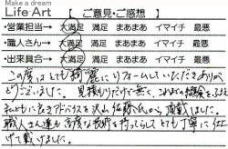 Make a dream
Life Art 【 ご意見・ご感想 】
・営業担当→ 大満足 満足 まあまあ イマイチ 最悪
・職人さん→ 大満足 満足 まあまあ イマイチ 最悪
・出来具合→ 大満足 満足 まあまあ イマイチ 最悪
この度はとても綺麗にリフォームしていただきありがとう
ございました。見積もりだけで無く、これからの
私たちに色々アドバイスを沢山佐藤氏から頂戴しました。
職人さん達も高度な技術を持ってらしてとても丁寧に仕上
げて戴けました。